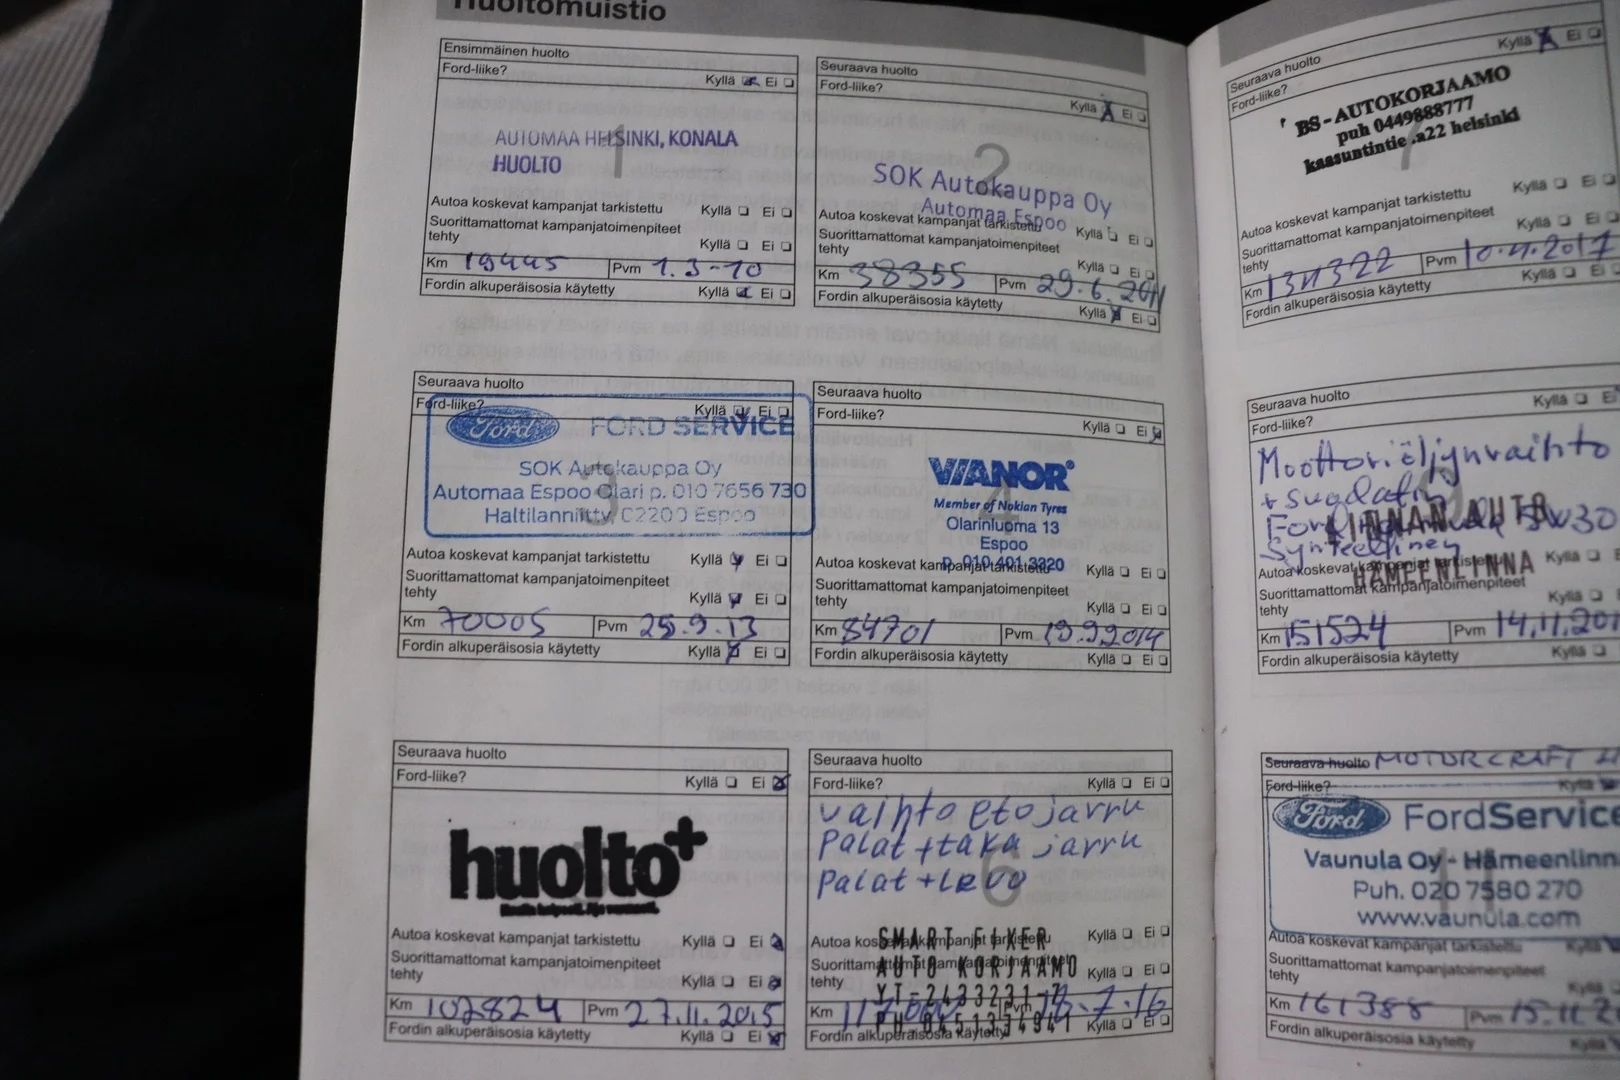 Huoltomuistio
Ensimmäinen huolto
Ford-liike? Kyllä Ei
1
AUTOMAA HELSINKI, KONALA
HUOLTO
Autoa koskevat kampanjat tarkistettu Kyllä Ei
Suorittamattomat kampanjatoimenpiteet
tehty Kyllä Ei
Km 19445 Pvm 1.3-10
Fordin alkuperäisosia käytetty Kyllä Ei
Seuraava huolto
Ford-liike? Kyllä Ei
2
SOK Autokauppa Oy
Automaa Espoo
Autoa koskevat kampanjat tarkistettu Kyllä Ei
Suorittamattomat kampanjatoimenpiteet
tehty Kyllä Ei
Km 38355 Pvm 29.6.2011
Fordin alkuperäisosia käytetty Kyllä Ei
Seuraava huolto
Ford-liike? Kyllä Ei
Ford FORD SERVICE
SOK Autokauppa Oy
Automaa Espoo Olari p. 010 7656 730
3
Haltilanniitty, 02200 Espoo
Autoa koskevat kampanjat tarkistettu Kyllä Ei
Suorittamattomat kampanjatoimenpiteet
tehty Kyllä Ei
Km 70005 Pvm 25.9.13
Fordin alkuperäisosia käytetty Kyllä Ei
Seuraava huolto
Ford-liike? Kyllä Ei
VIANOR
Member of Nokian Tyres
4
Olarinluoma 13
Espoo
p. 010 401 3320
Autoa koskevat kampanjat tarkistettu Kyllä Ei
Suorittamattomat kampanjatoimenpiteet
tehty Kyllä Ei
Km 84701 Pvm 19.9.2014
Fordin alkuperäisosia käytetty Kyllä Ei
Seuraava huolto
Ford-liike? Kyllä Ei
huolto+
Autoa koskevat kampanjat tarkistettu Kyllä Ei
Suorittamattomat kampanjatoimenpiteet
tehty Kyllä Ei
Km 102824 Pvm 27.11.2015
Fordin alkuperäisosia käytetty Kyllä Ei
Seuraava huolto
Ford-liike? Kyllä Ei
vaihto etojarru
Palat + taka jarru
6
Palat + levo
SMART FIXER
Autoa koskevat kampanjat tarkistettu Kyllä Ei
AUTO KORJAAMO
Suorittamattomat kampanjatoimenpiteet
tehty Kyllä Ei
YT-2433231-7
Km Pvm 18.7.16
PH.0451334941
Fordin alkuperäisosia käytetty Kyllä Ei
Seuraava huolto Kyllä Ei
Ford-liike?
BS-AUTOKORJAAMO
puh 0449888777
kaasuntintie .a22 helsinki
7
Autoa koskevat kampanjat tarkistettu Kyllä Ei
Suorittamattomat kampanjatoimenpiteet
tehty Kyllä Ei
Km Pvm 10.4.2017
Fordin alkuperäisosia käytetty Kyllä Ei
Seuraava huolto
Ford-liike? Kyllä Ei
Moottoriöljynvaihto
9
+ suodatin
Ford 5W30
LINNAN AUTO
Synteettinen
HÄMEENLINNA
Autoa koskevat kampanjat tarkistettu Kyllä
Suorittamattomat kampanjatoimenpiteet
tehty Kyllä
Km 151524 Pvm 14.11.201
Fordin alkuperäisosia käytetty Kyllä
Seuraava huolto MOTORCRAFT
Ford-liike? Kyllä
Ford FordService
Vaunula Oy - Hämeenlinn
11
Puh. 020 7580 270
www.vaunula.com
Autoa koskevat kampanjat tarkistettu Kyllä
Suorittamattomat kampanjatoimenpiteet
tehty Kyllä
Km 161388 Pvm 15.11.2
Fordin alkuperäisosia käytetty Kyllä